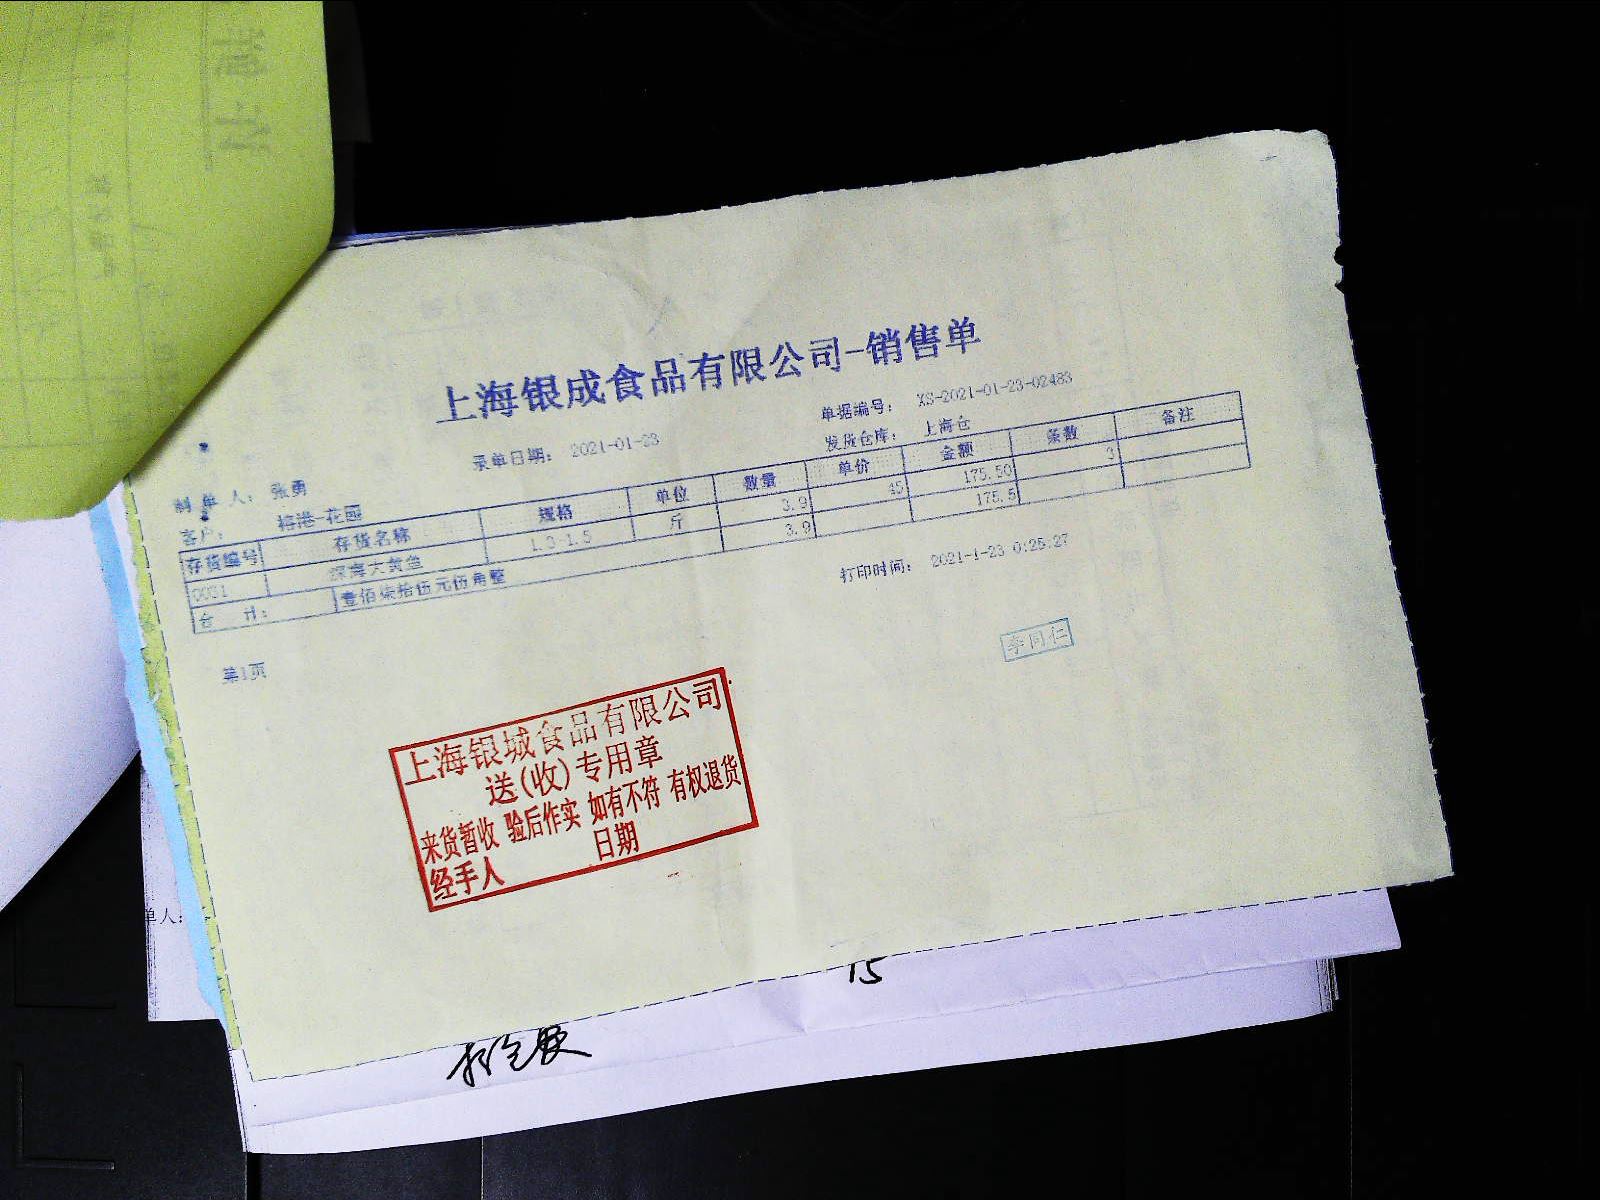 上海银成食品有限公司-销售单
单据编号： XS-2021-01-23-02483
录单日期： 2021-01-23
发货仓库： 上海仓
制 单 人： 张勇
客户：
存货编号 存货名称 规格 单位 数量 单价 金额 条数 备注
0031 深海大黄鱼 1.3-1.5 斤 3.9 45 175.50 3
合 计： 壹佰柒拾伍元伍角整 3.9 175.5
打印时间： 2021-1-23 0:25:27
第1页
李同仁
上海银城食品有限公司
送(收)专用章
来货暂收 验后作实 如有不符 有权退货
经手人 日期
单人：
15